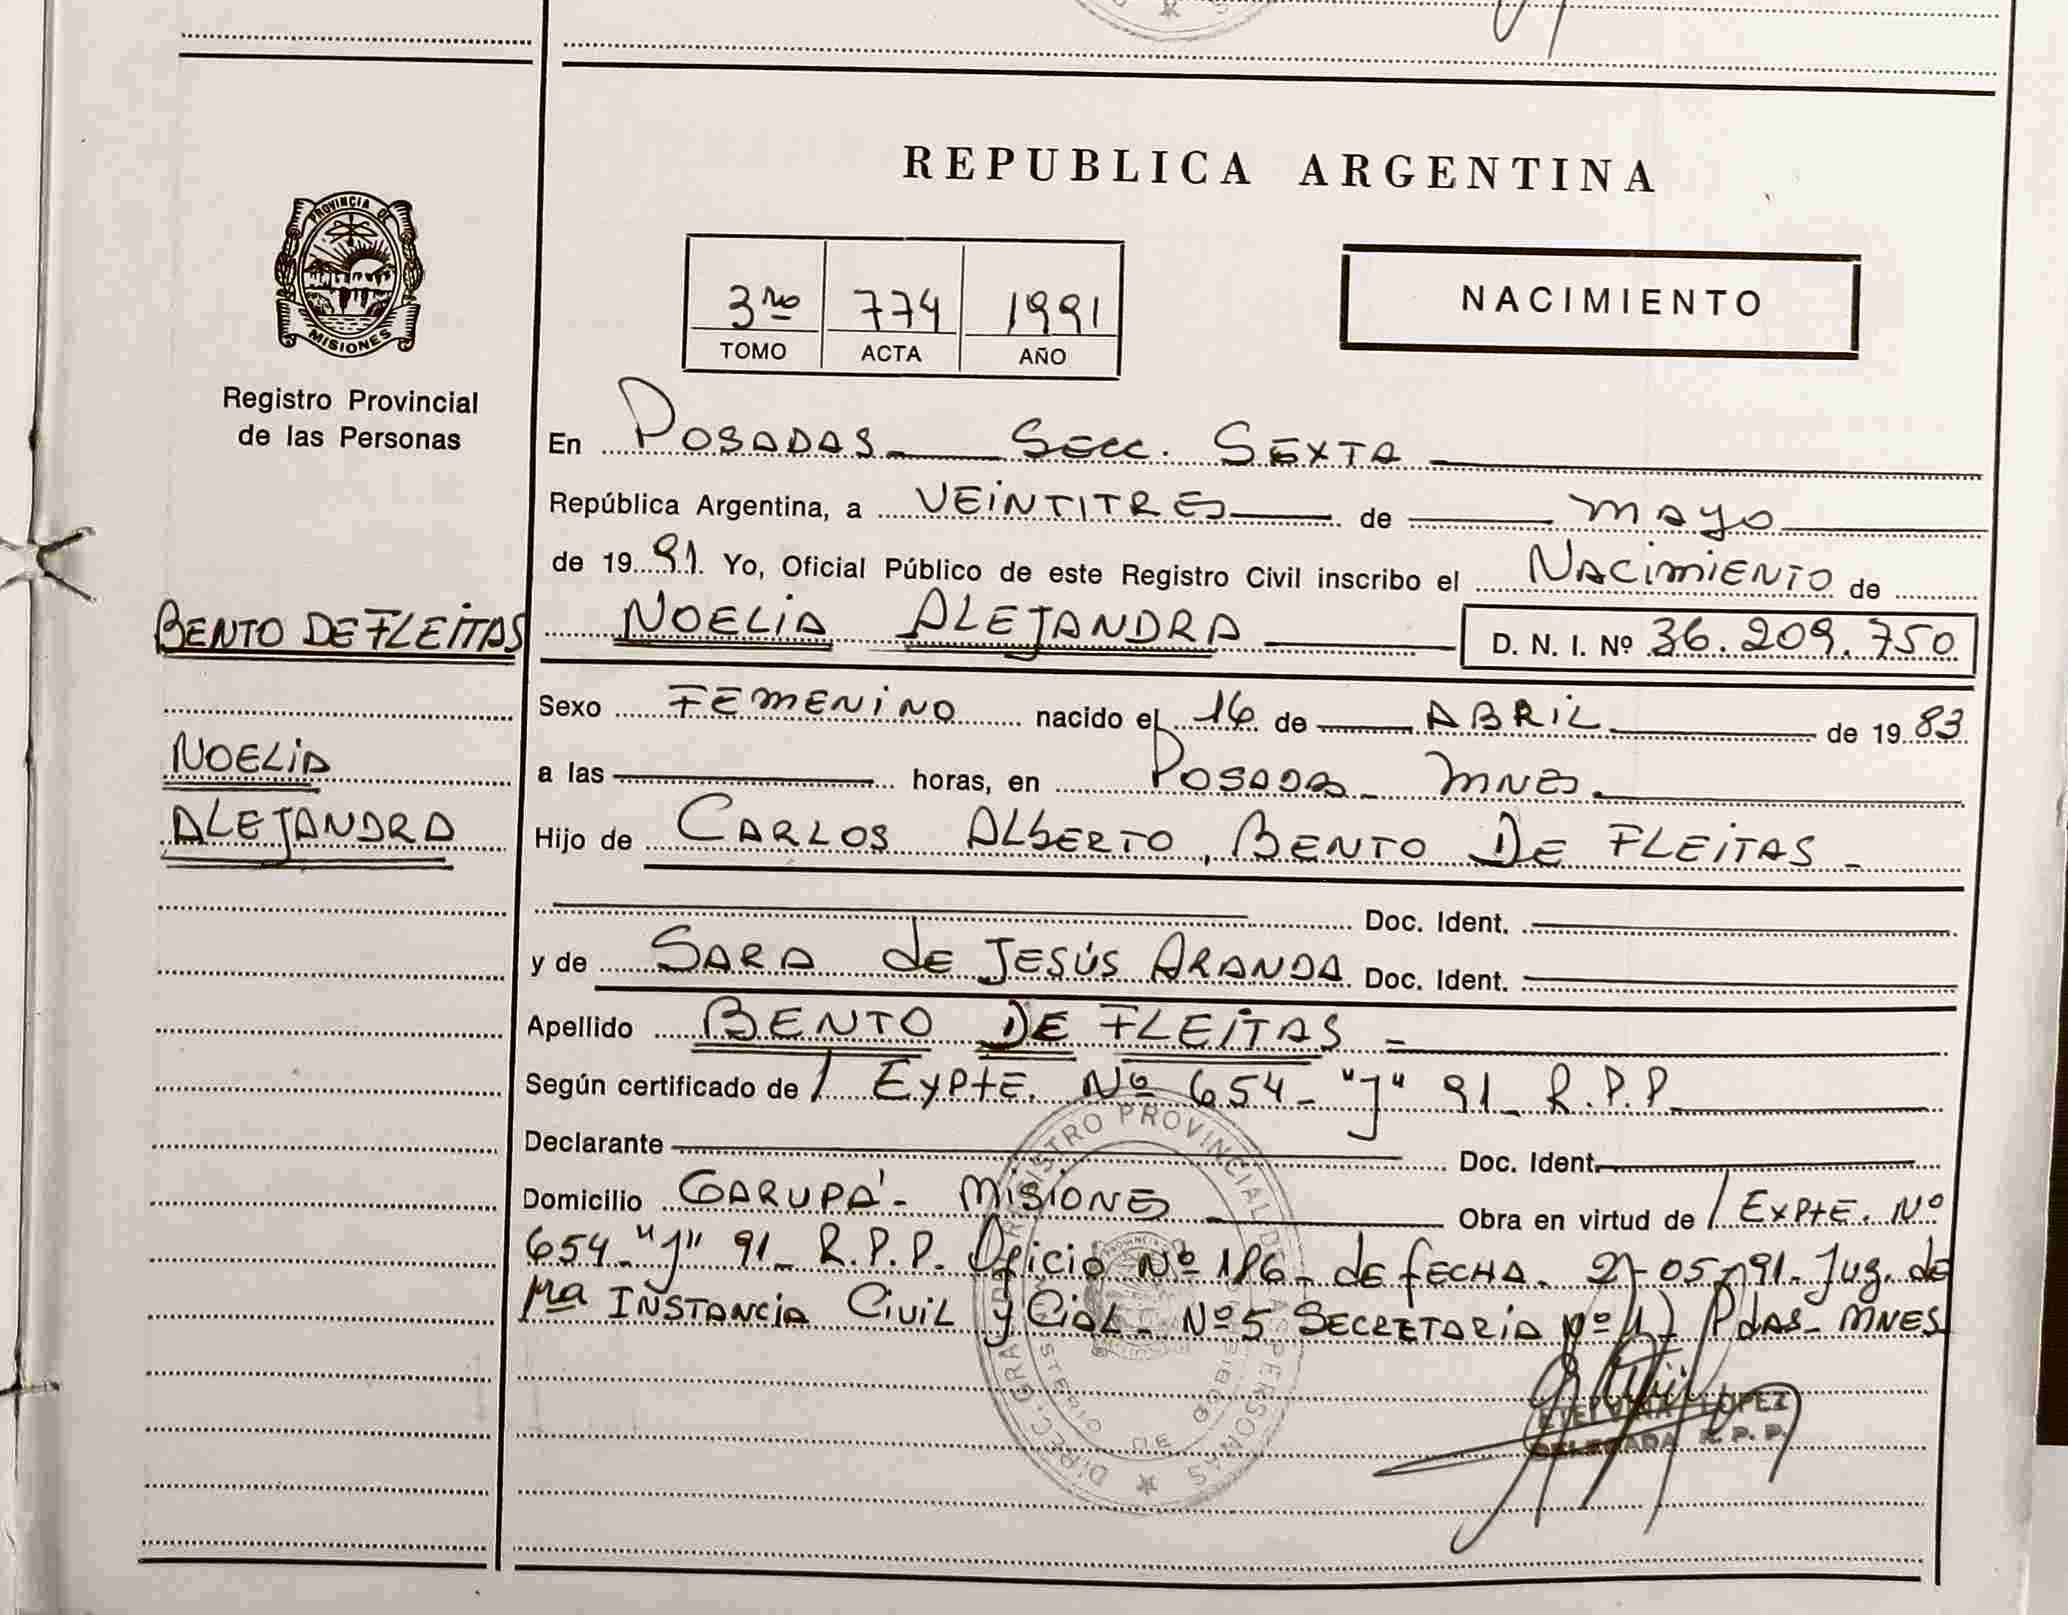 REPUBLICA ARGENTINA
PROVINCIA DE
MISIONES
Registro Provincial
de las Personas
3ro 774 1991
TOMO ACTA AÑO
NACIMIENTO
En POSADAS SECC. SEXTA
República Argentina, a VEINTITRES de mayo
de 1991 Yo, Oficial Público de este Registro Civil inscribo el NACIMIENTO de
BENTO DE FLEITAS
NOELIA ALEJANDRA D. N. I. Nº 36.209.750
Sexo FEMENINO nacido el 16 de ABRIL de 1983
NOELIA
a las horas, en POSADAS MNES
ALEJANDRA
Hijo de CARLOS ALBERTO, BENTO DE FLEITAS
Doc. Ident.
y de SARA de JESÚS ARANDA Doc. Ident.
Apellido BENTO DE FLEITAS
Según certificado de / EXPTE. Nº 654 - "J" 91 - R.P.P.
Declarante Doc. Ident.
Domicilio GARUPÁ - MISIONES Obra en virtud de / EXPTE. Nº
654 - "J" 91 - R.P.P. Oficio Nº 186 - de FECHA. -05-91. Juz. de
1ra INSTANCIA CIVIL y CiAL - Nº 5 SECRETARIA Nº PdAS - MNES
DIREC. GRAL. REGISTRO PROVINCIAL DE LAS PERSONAS
ETELVINA LOPEZ
DELEGADA R. P. P.